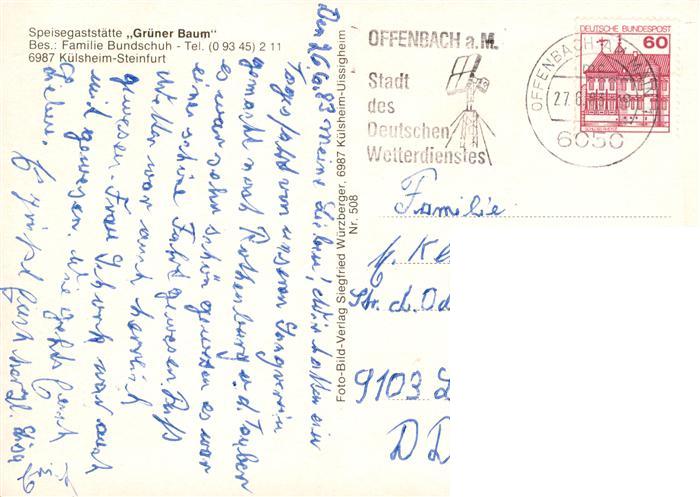 Speisegaststätte „Grüner Baum"
Bes.: Familie Bundschuh - Tel. (0 93 45) 2 11
6987 Külsheim-Steinfurt
Den 26.6.83 Meine Lieben! Wir hatten ein
Tagesfahrt von unserem Singverein
gemacht nach Rothenburg o. d. Tauber
es war sehr schön gewesen es war
eine schöne Fahrt gewesen. Das
Wetter war auch herrlich
gewesen. Frau Schork war auch
mit gewesen. Wie geht's Euch
Lieben. Es grüßt Euch herzl.
Foto-Bild-Verlag Siegfried Würzberger, 6987 Külsheim-Uissigheim
Nr. 508
OFFENBACH a.M.
Stadt
des
Deutschen
Wetterdienstes
OFFENBACH AM MAIN
27.6.83
6050
DEUTSCHE BUNDESPOST
60
Familie
Str. d. Od
9103
DD